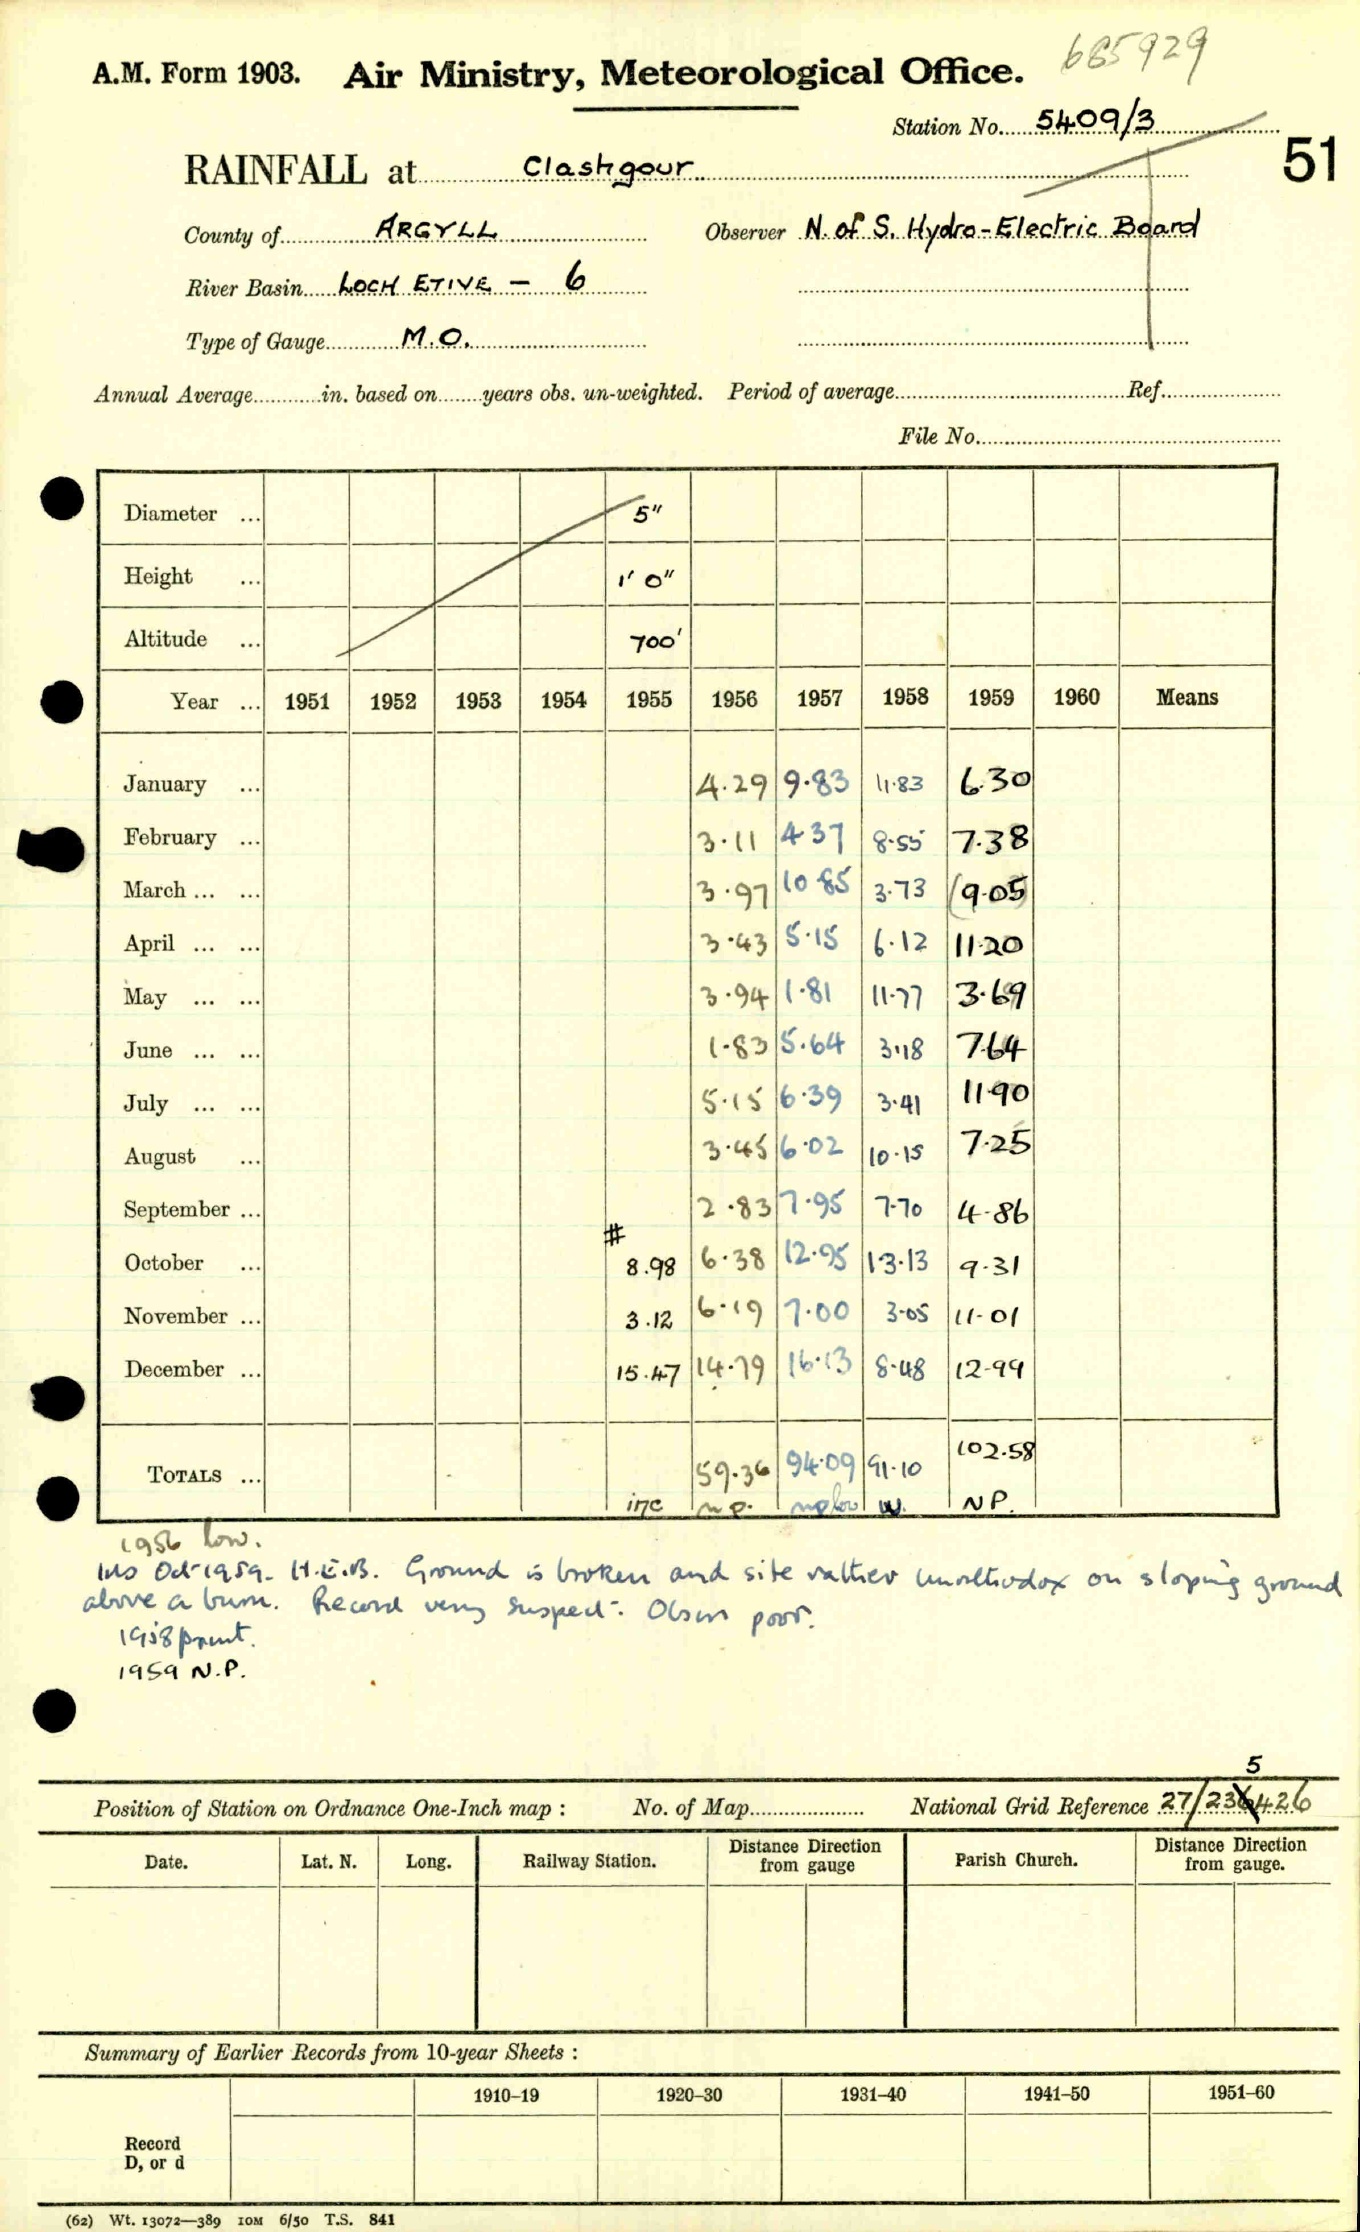 685929
A.M. Form 1903. Air Ministry, Meteorological Office.
Station No. 5409/3
51
RAINFALL at Clashgour
County of ARGYLL Observer N. of S. Hydro-Electric Board
River Basin LOCH ETIVE – 6
Type of Gauge M.O.
Annual Average in. based on years obs. un-weighted. Period of average Ref.
File No.
Diameter ... 5"
Height ... 1' 0"
Altitude ... 700'
Year ... 1951 1952 1953 1954 1955 1956 1957 1958 1959 1960 Means
January ... 4.29 9.83 11.83 6.30
February ... 3.11 4.37 8.55 7.38
March ... ... 3.97 10.85 3.73 (9.05)
April ... ... 3.43 5.15 6.12 11.20
May ... ... 3.94 1.81 11.77 3.69
June ... ... 1.83 5.64 3.18 7.64
July ... ... 5.15 6.39 3.41 11.90
August ... 3.45 6.02 10.15 7.25
September ... 2.83 7.95 7.70 4.86
#
October ... 8.98 6.38 12.95 13.13 9.31
November ... 3.12 6.19 7.00 3.05 11.01
December ... 15.47 14.79 16.13 8.48 12.99
TOTALS ... 59.36 94.09 91.10 102.58
inc n.p. w. N.P.
1956 low.
Ins Oct 1959. H.E.B. Ground is broken and site rather unorthodox on sloping ground
above a burn. Record very suspect. Obsn poor.
1958 print.
1959 N.P.
5
Position of Station on Ordnance One-Inch map : No. of Map National Grid Reference 27/236426
Date. Lat. N. Long. Railway Station. Distance Direction from gauge Parish Church. Distance Direction from gauge.
Summary of Earlier Records from 10-year Sheets :
1910–19 1920–30 1931–40 1941–50 1951–60
Record
D, or d
(62) Wt. 13072—389 10M 6/50 T.S. 841